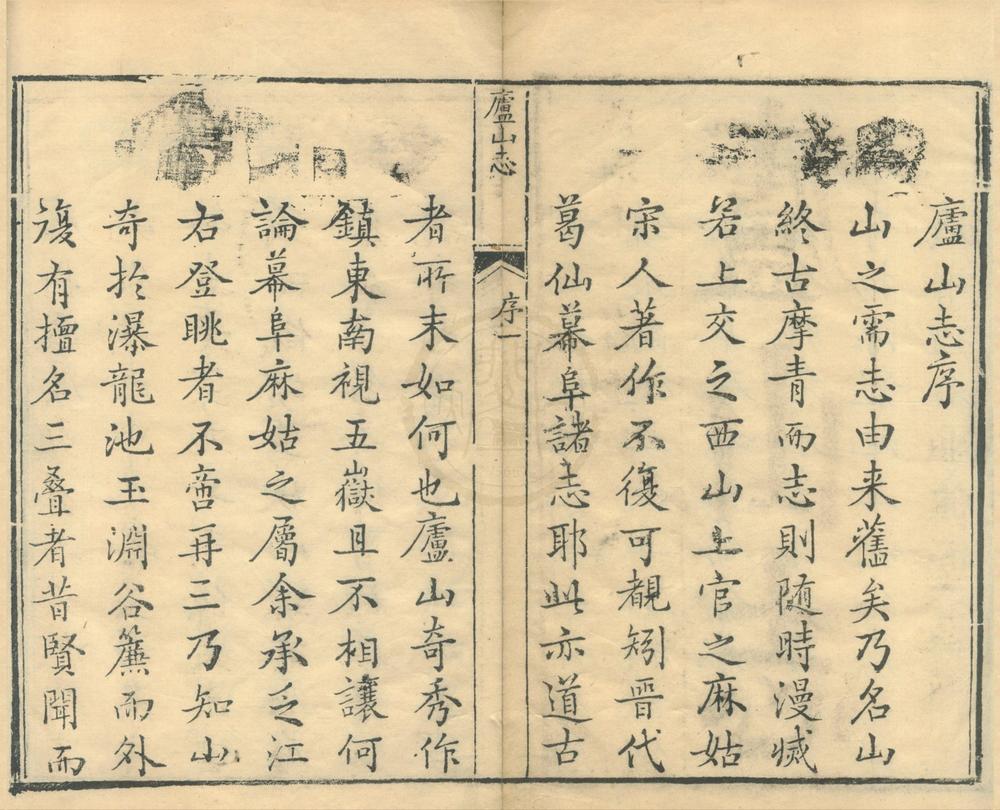 廬山志序
山之需志由来舊矣乃名山
終古摩青而志則随時漫滅
若上交之西山上官之麻姑
宗人著作不復可覩矧晋代
葛仙幕阜諸志耶此亦道古
廬山志
序一
者所末如何也廬山奇秀作
鎮東南視五嶽且不相讓何
論幕阜麻姑之層余承乏江
右登眺者不啻再三乃知山
奇於瀑龍池玉淵谷簾而外
復有擅名三疊者昔賢聞而